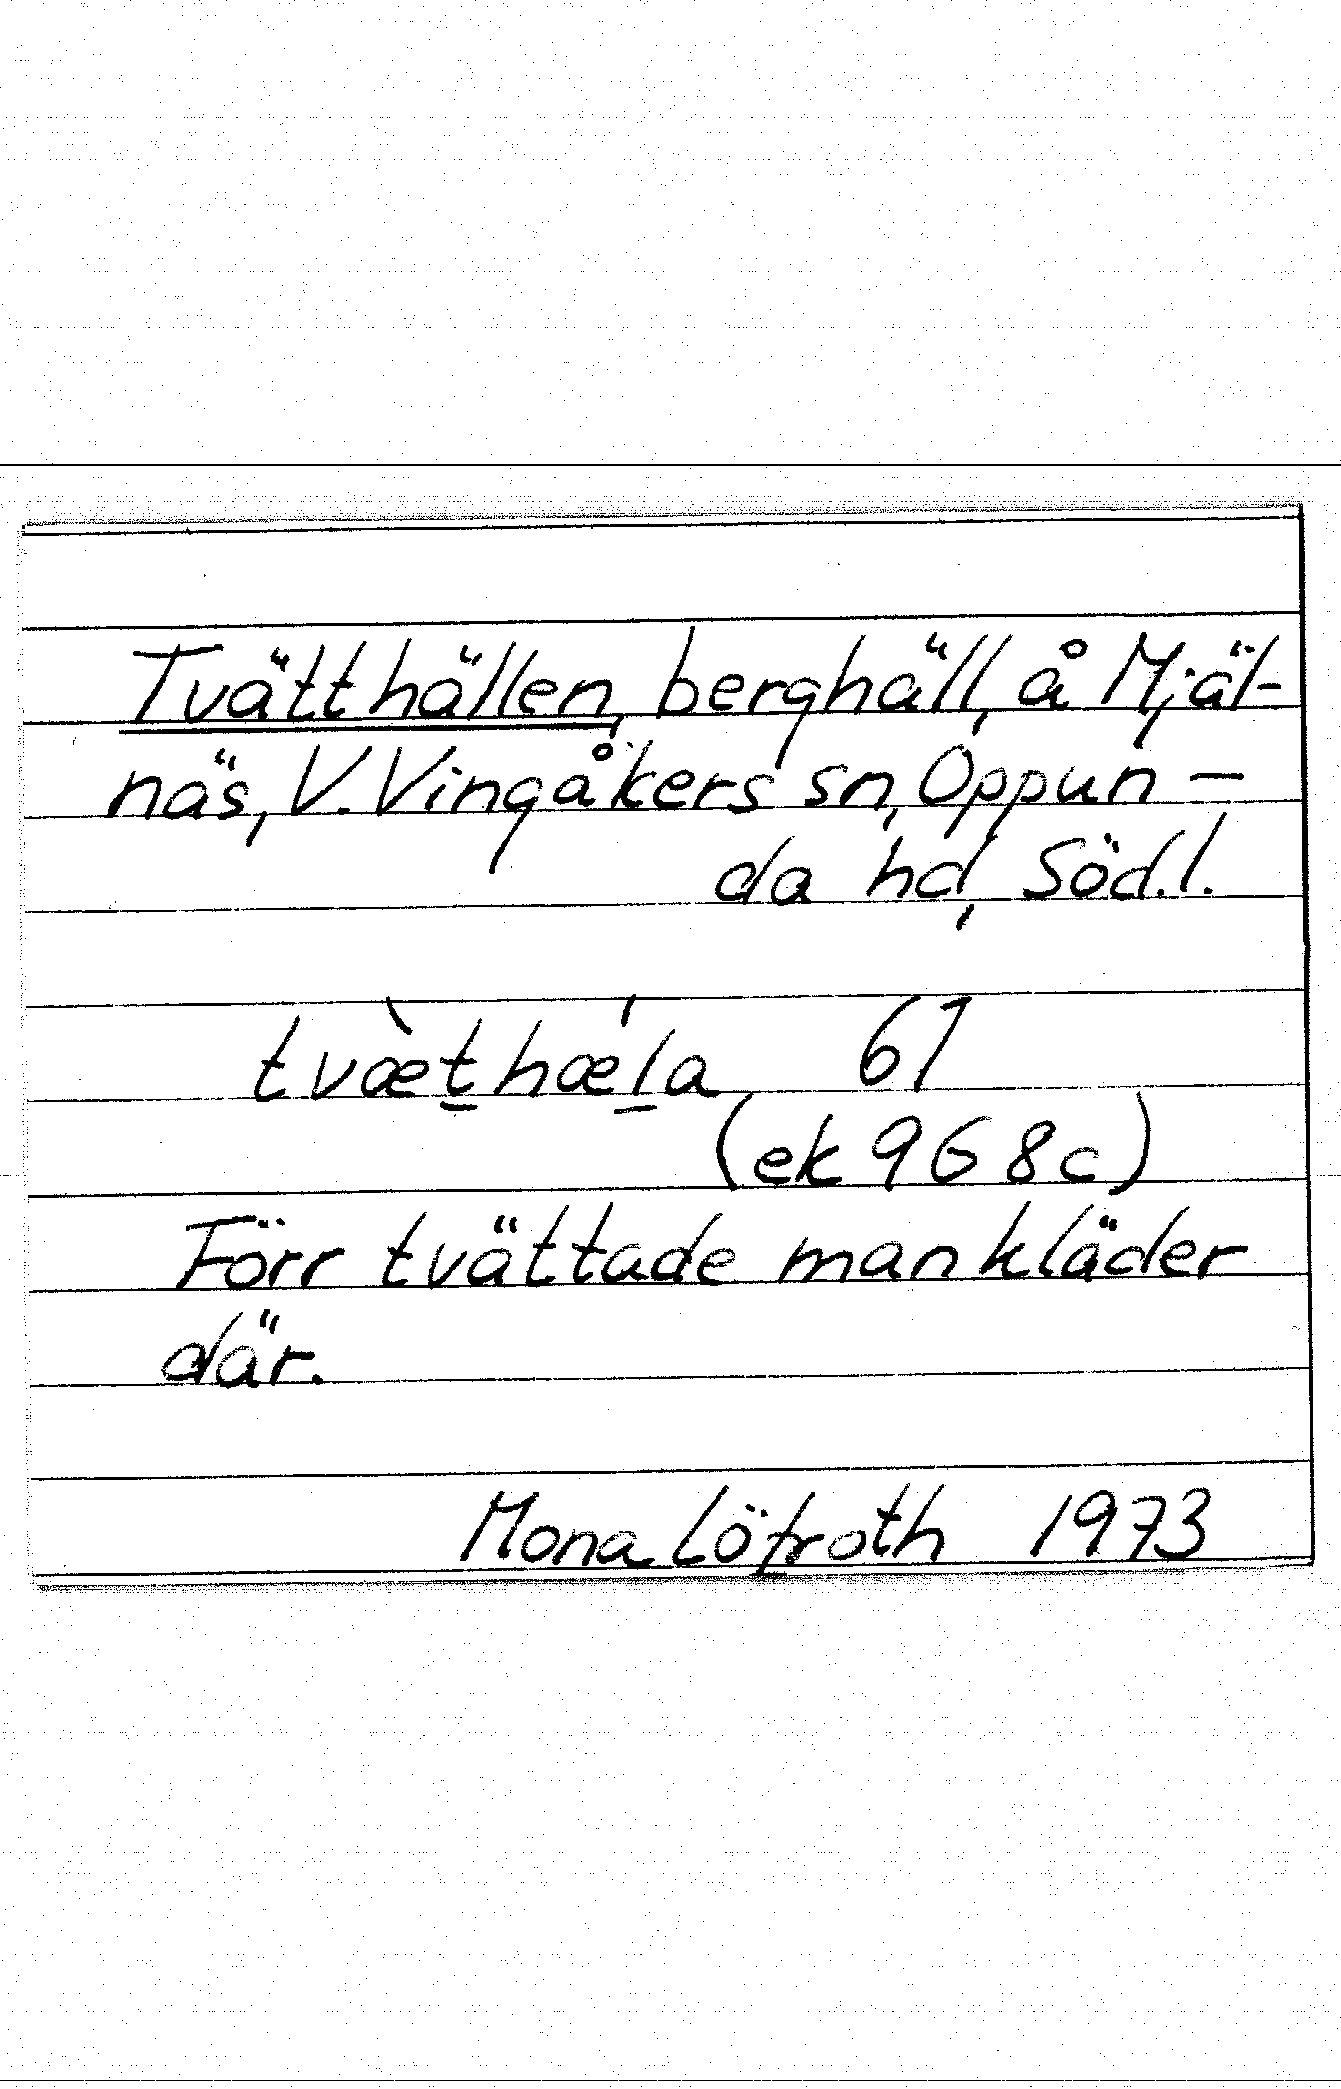 Tvätthällen, berghäll, å Mjäl-
näs, V. Vingåkers sn, Oppun-
da hd, Söd.l.
tvæ̀t̲hæ̍l̲a 61
(ek 9G8c)
Förr tvättade man kläder
där.
Mona Löfroth 1973